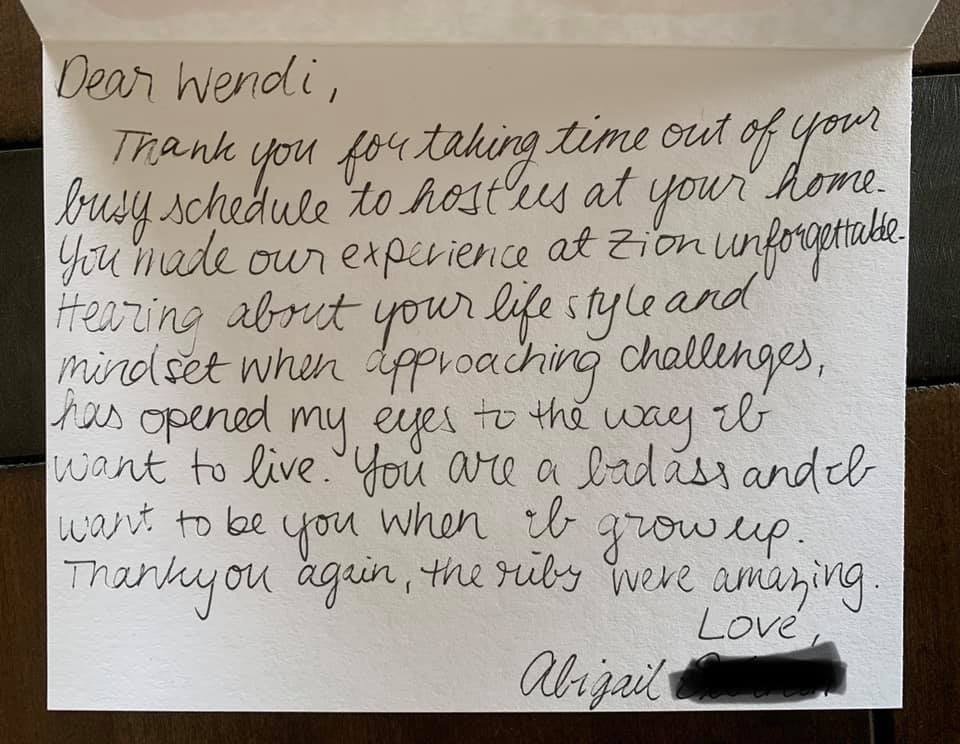 Dear Wendi,
Thank you for taking time out of your
busy schedule to host us at your home.
You made our experience at Zion unforgettable.
Hearing about your life style and
mindset when approaching challenges,
has opened my eyes to the way I
want to live. You are a badass and I
want to be you when I grow up.
Thank you again, the ribs were amazing.
Love,
Abigail